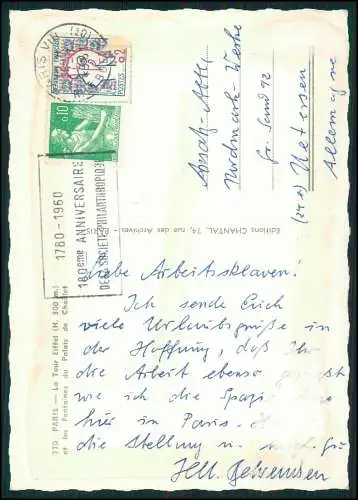 PARIS VIII
0,10
POSTES
1780-1960
180ème ANNIVERSAIRE
DE LA SOCIÉTÉ PHILANTHROPIQUE
Ansch-Abtlg
Nordmark-Werke
Gr. Sand 92
(24a) Uetersen
Allemagne
Editions CHANTAL, 74, rue des Archives - PARIS
770 PARIS — La Tour Eiffel (H. 300 m.)
et les Fontaines du Palais de Chaillot
Liebe Arbeitssklaven!
Ich sende Euch
viele Urlaubsgrüße in
der Hoffnung, daß Ihr
die Arbeit ebenso
wie ich die
hier in Paris.
die Stellung u.